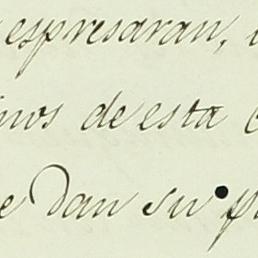 espresaran,
inos de esta
e dan su p